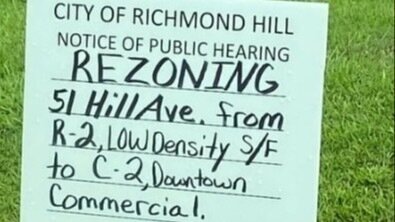 CITY OF RICHMOND HILL
NOTICE OF PUBLIC HEARING
REZONING
51 Hill Ave. from
R-2, LOW Density S/F
to C-2, Downtown
Commercial.